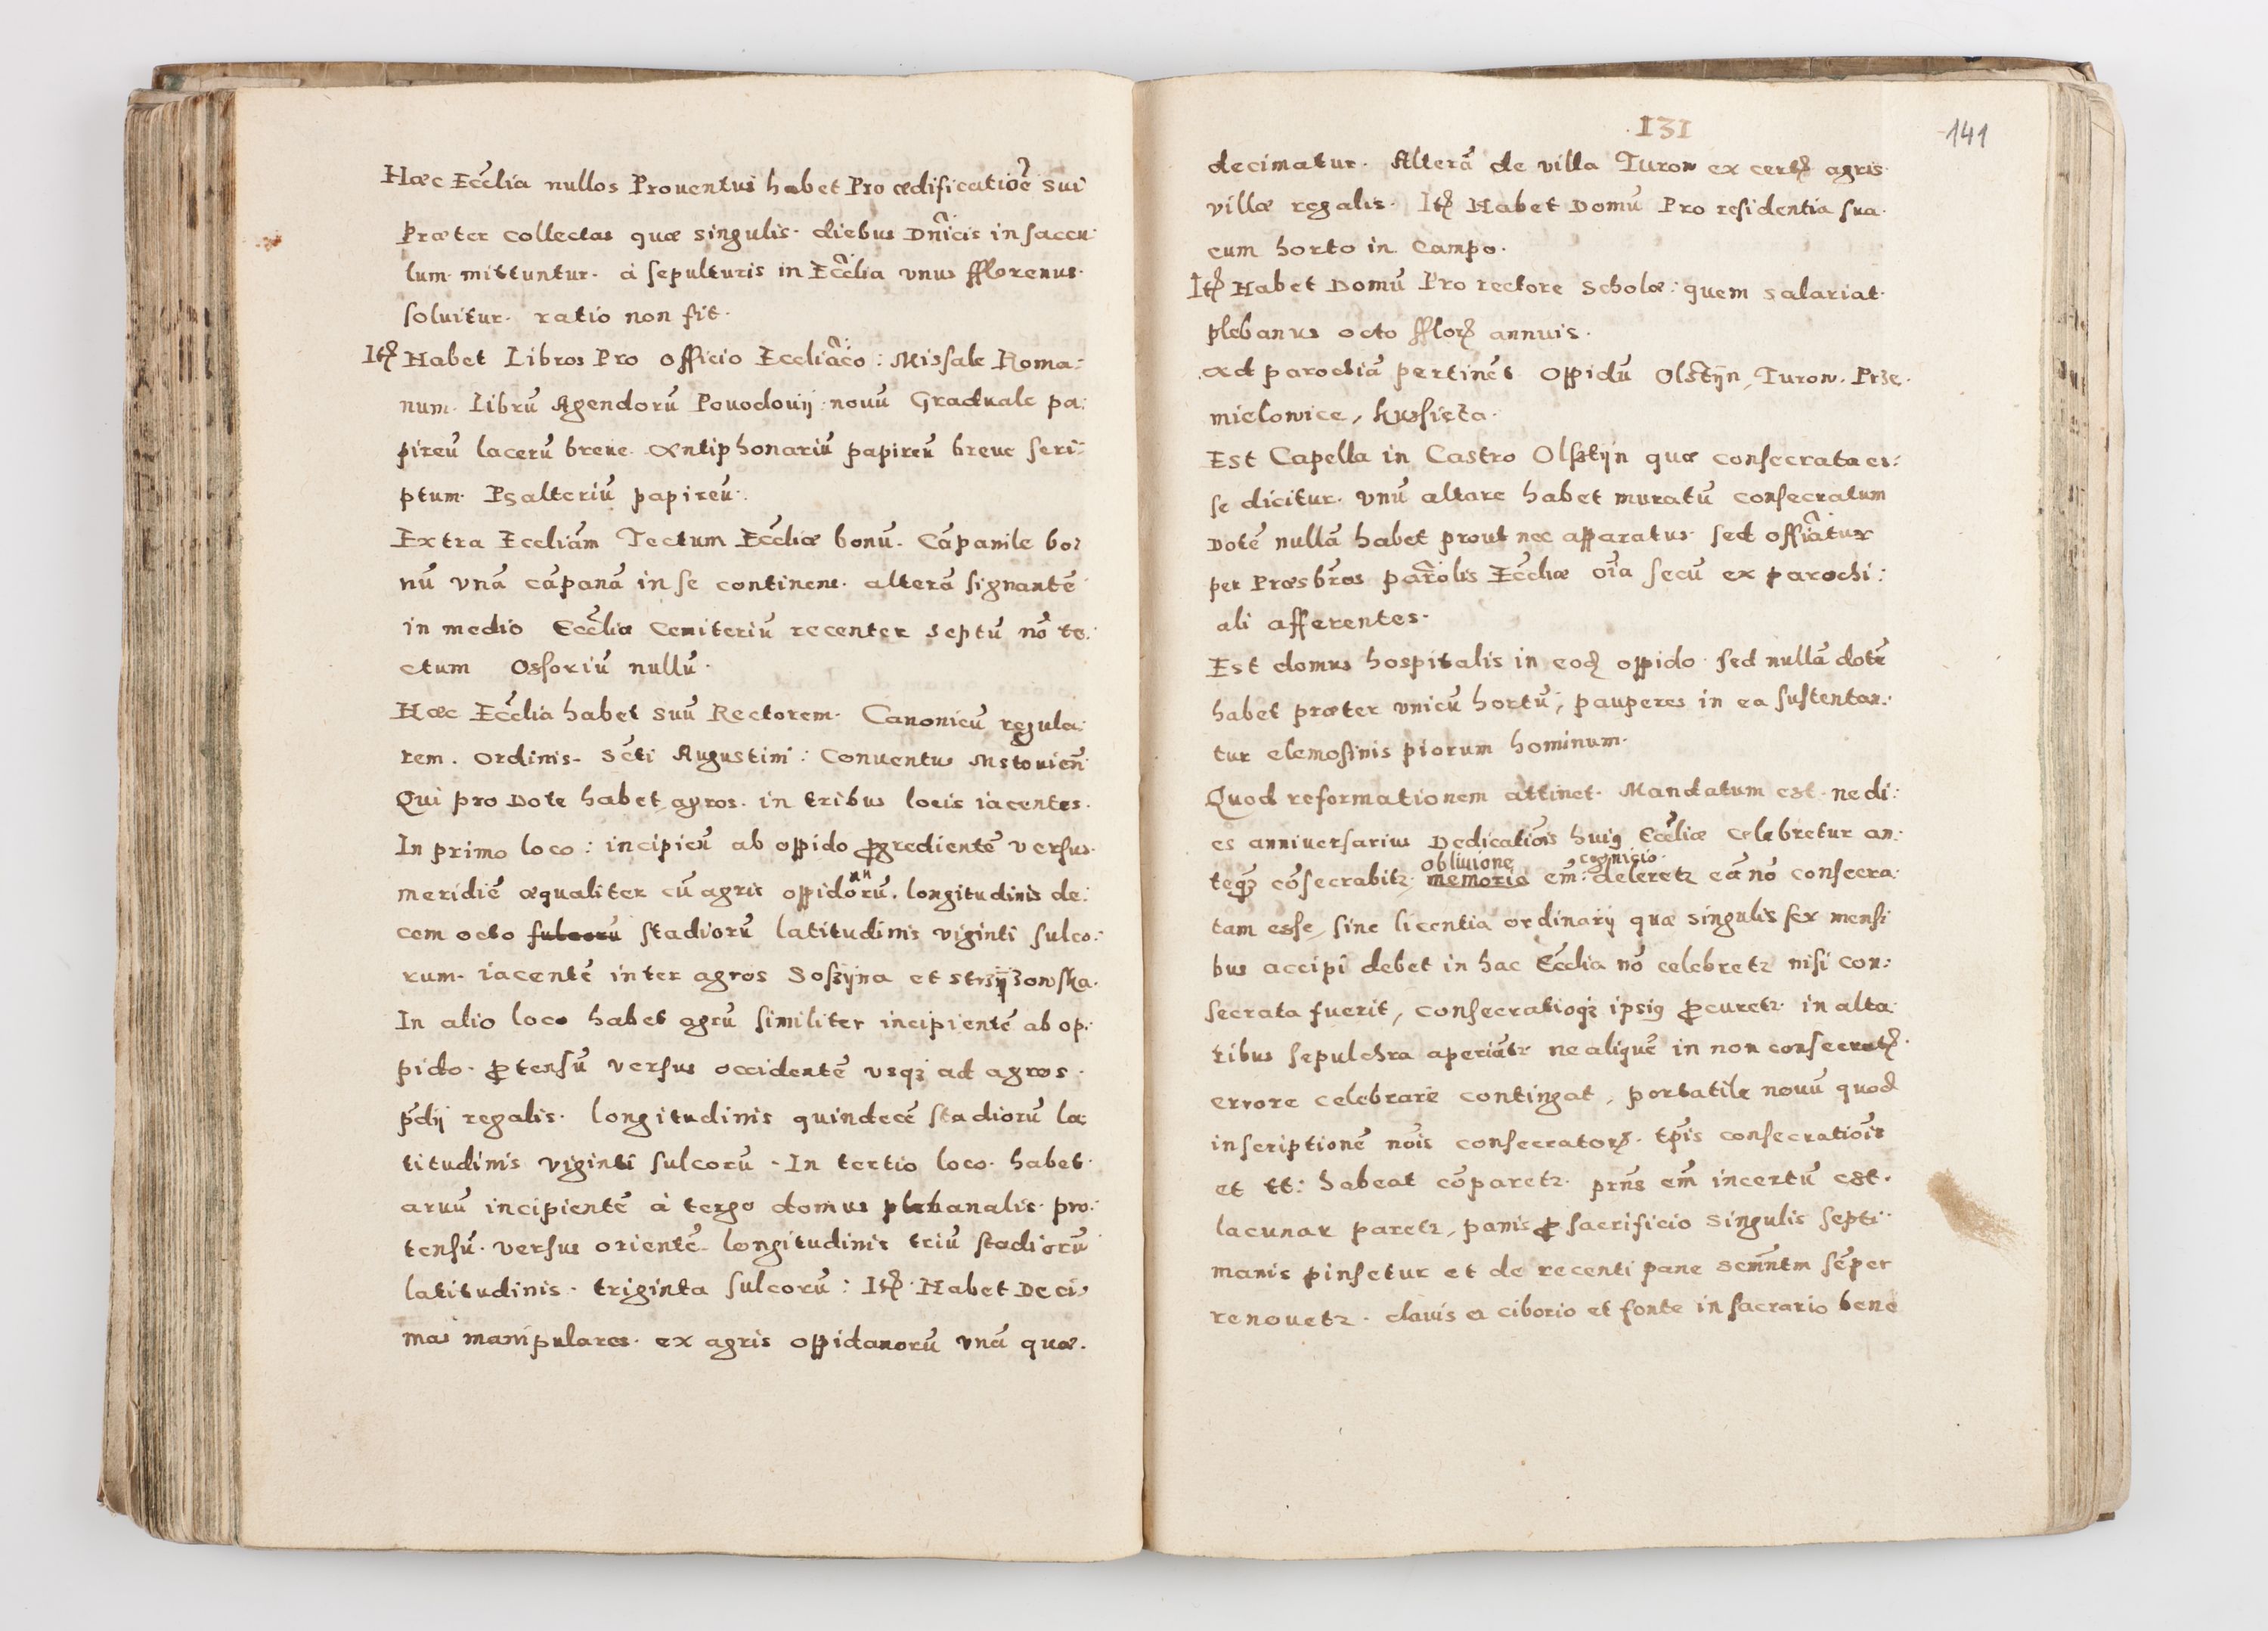 Hæc Eccl̃ia nullos Prouentus habet Pro ædificatiõe sui
Præter collectas quæ singulis· diebus Dñicis in saccu:
lum· mittuntur· à sepulturis in Eccl̃ia vnus fflorenus·
soluitur· ratio non fit·
Itẽ Habet Libros Pro officio Eccliãco: Missale Roma:
num· librũ Agendorũ Pouodouij nouũ Graduale pa:
pireũ lacerũ breue· Antiphonariũ papireũ breue scri:
ptum· Psalteriũ papireũ·
Extra Eccliãm Tectum Eccl̃iæ bonũ· Cãpanile bo:
nũ vnã cãpanã in se continens· alterã signantẽ
in medio Eccl̃iæ Cemiteriũ recenter septũ nõ te:
ctum Ossoriũ nullũ·
Hæc Eccl̃ia habet suũ Rectorem· Canonicũ regula:
rem· ordinis· Scti Augustini: Conuentus Mstouieñ
Qui pro Dote habet agros· in tribus locis iacentes·
In primo loco: incipieñ ab oppido ꝓgredientẽ versus·
meridiẽ æqualiter cũ agris oppidorũ· longitudinis de:
an
cem octo sulcorũ stadiorũ latitudinis viginti sulco:
rum· iacentẽ inter agros Soszyna et strzyzowska·
In alio loco habet agrũ similiter incipientẽ ab op:
pido· ꝓtensũ versus occidentẽ vsqꝫ ad agros·
p̃dij regalis· longitudinis quindecẽ stadiorũ la:
titudinis viginti sulcorũ· In tertio loco· habet·
aruũ incipientẽ à tergo domus plebanalis· pro:
tensũ· versus orientẽ· longitudinis triũ stadiorũ
latitudinis· triginta sulcorũ: Itẽ· Habet Deci:
mas manipulares· ex agris oppidanorũ vnã quæ·
131
141
decimatur· Alterã de villa Turow ex certꝭ agris·
villæ regalis· Itẽ Habet Domũ Pro residentia sua·
cum horto in Campo·
Itẽ Habet Domũ Pro rectore Scholæ: quem salariat·
plebanus octo fflorꝭ annuis·
ad parochiã pertinet oppidũ Olsztijn, Turow· Prze·
mielowice, Kusfieta·
Est Capella in Castro Olsztijn quæ consecrata es:
se dicitur· vnũ altare habet muratũ consecratum
Dotẽ nullã habet prout nec apparatus· sed offiãtur
per Præsbr̃os parõlis Eccl̃iæ oĩa secũ ex parochi:
ali afferentes·
Est domus hospitalis in eoꝭ oppido· sed nullã dotẽ
habet præter vnicũ hortũ; pauperes in ea sustentan:
tur elemosinis piorum hominum·
Quod reformationem attinet· Mandatum est· ne di:
es anniuersarius Dedicatiõis huiꝯ Eccl̃iæ celebretur an:
obliuione cognicio·
teqꝫ cõsecrabitꝛ· memoria em̃: deleretꝛ eã nõ consecra:
tam esse, sine licentia ordinarij quæ singulis sex mensi
bus accipi debet in hac Eccl̃ia nõ celebretꝛ nisi con:
secrata fuerit, consecratioqꝫ ipsiꝯ ꝓcuretꝛ· in alta:
ribus sepulchra aperiãtꝛ ne aliquẽ in non consecratꝭ·
errore celebrare contingat, portatile nouũ quod
inscriptionẽ nõis consecratorꝭ· tp̃is consecratiõis
et tt: habeat cõparetꝛ· prñs em̃ incertũ est·
lacunar paretꝛ, panis ꝓ sacrificio singulis septi:
manis pinsetur et de recenti pane semñtm sẽper
renouetꝛ· clauis a ciborio et fonte in sacrario bene